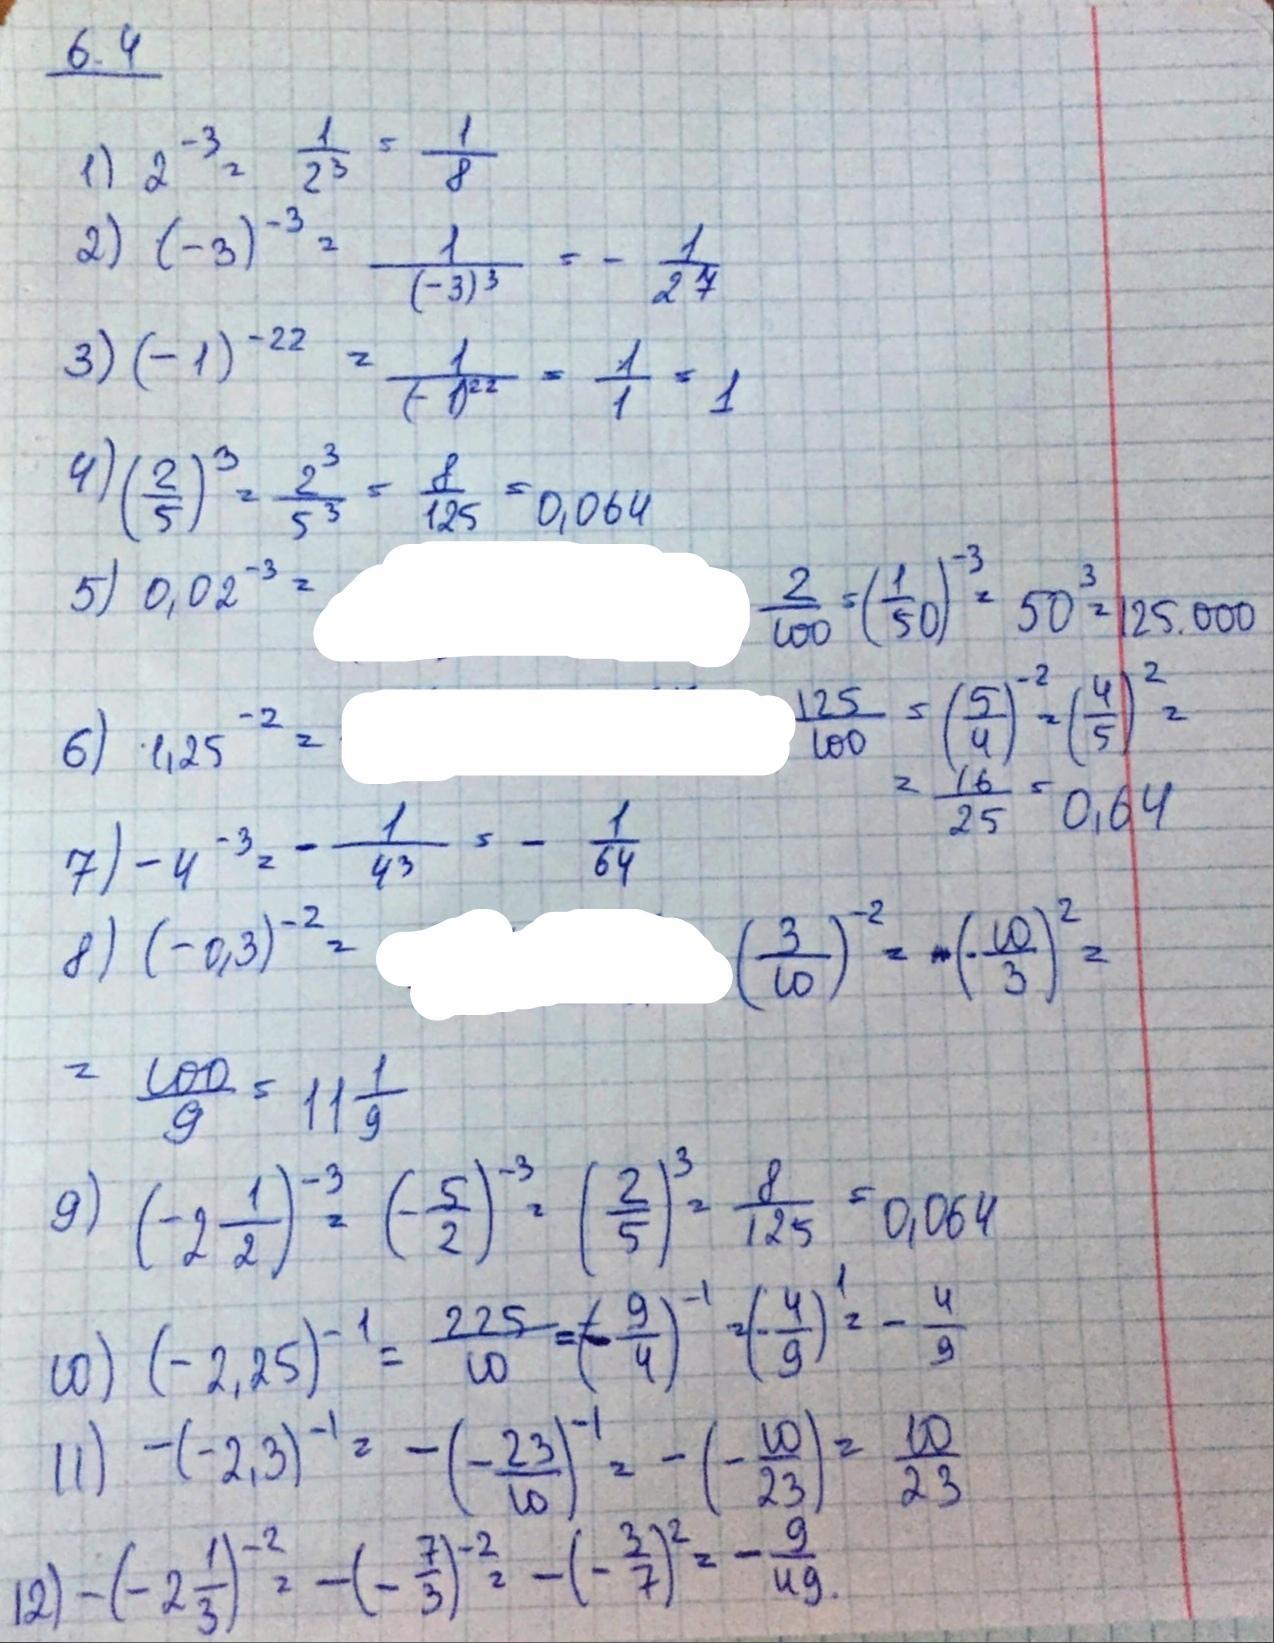 6.4
1) 2^-3 = 1/2^3 = 1/8
2) (-3)^-3 = 1/(-3)^3 = - 1/27
3) (-1)^-22 = 1/(-1)^22 = 1/1 = 1
4) (2/5)^3 = 2^3/5^3 = 8/125 = 0,064
5) 0,02^-3 = 2/100 = (1/50)^-3 = 50^3 = 125.000
6) 1,25^-2 = 125/100 = (5/4)^-2 = (4/5)^2 =
= 16/25 = 0,64
7) -4^-3 = - 1/4^3 = - 1/64
8) (-0,3)^-2 = (3/10)^-2 = (-10/3)^2 =
= 100/9 = 11 1/9
9) (-2 1/2)^-3 = (-5/2)^-3 = (2/5)^3 = 8/125 = 0,064
10) (-2,25)^-1 = 225/10 = (-9/4)^-1 = (-4/9)^1 = - 4/9
11) -(-2,3)^-1 = -(-23/10)^-1 = -(-10/23) = 10/23
12) -(-2 1/3)^-2 = -(-7/3)^-2 = -(-3/7)^2 = - 9/49.